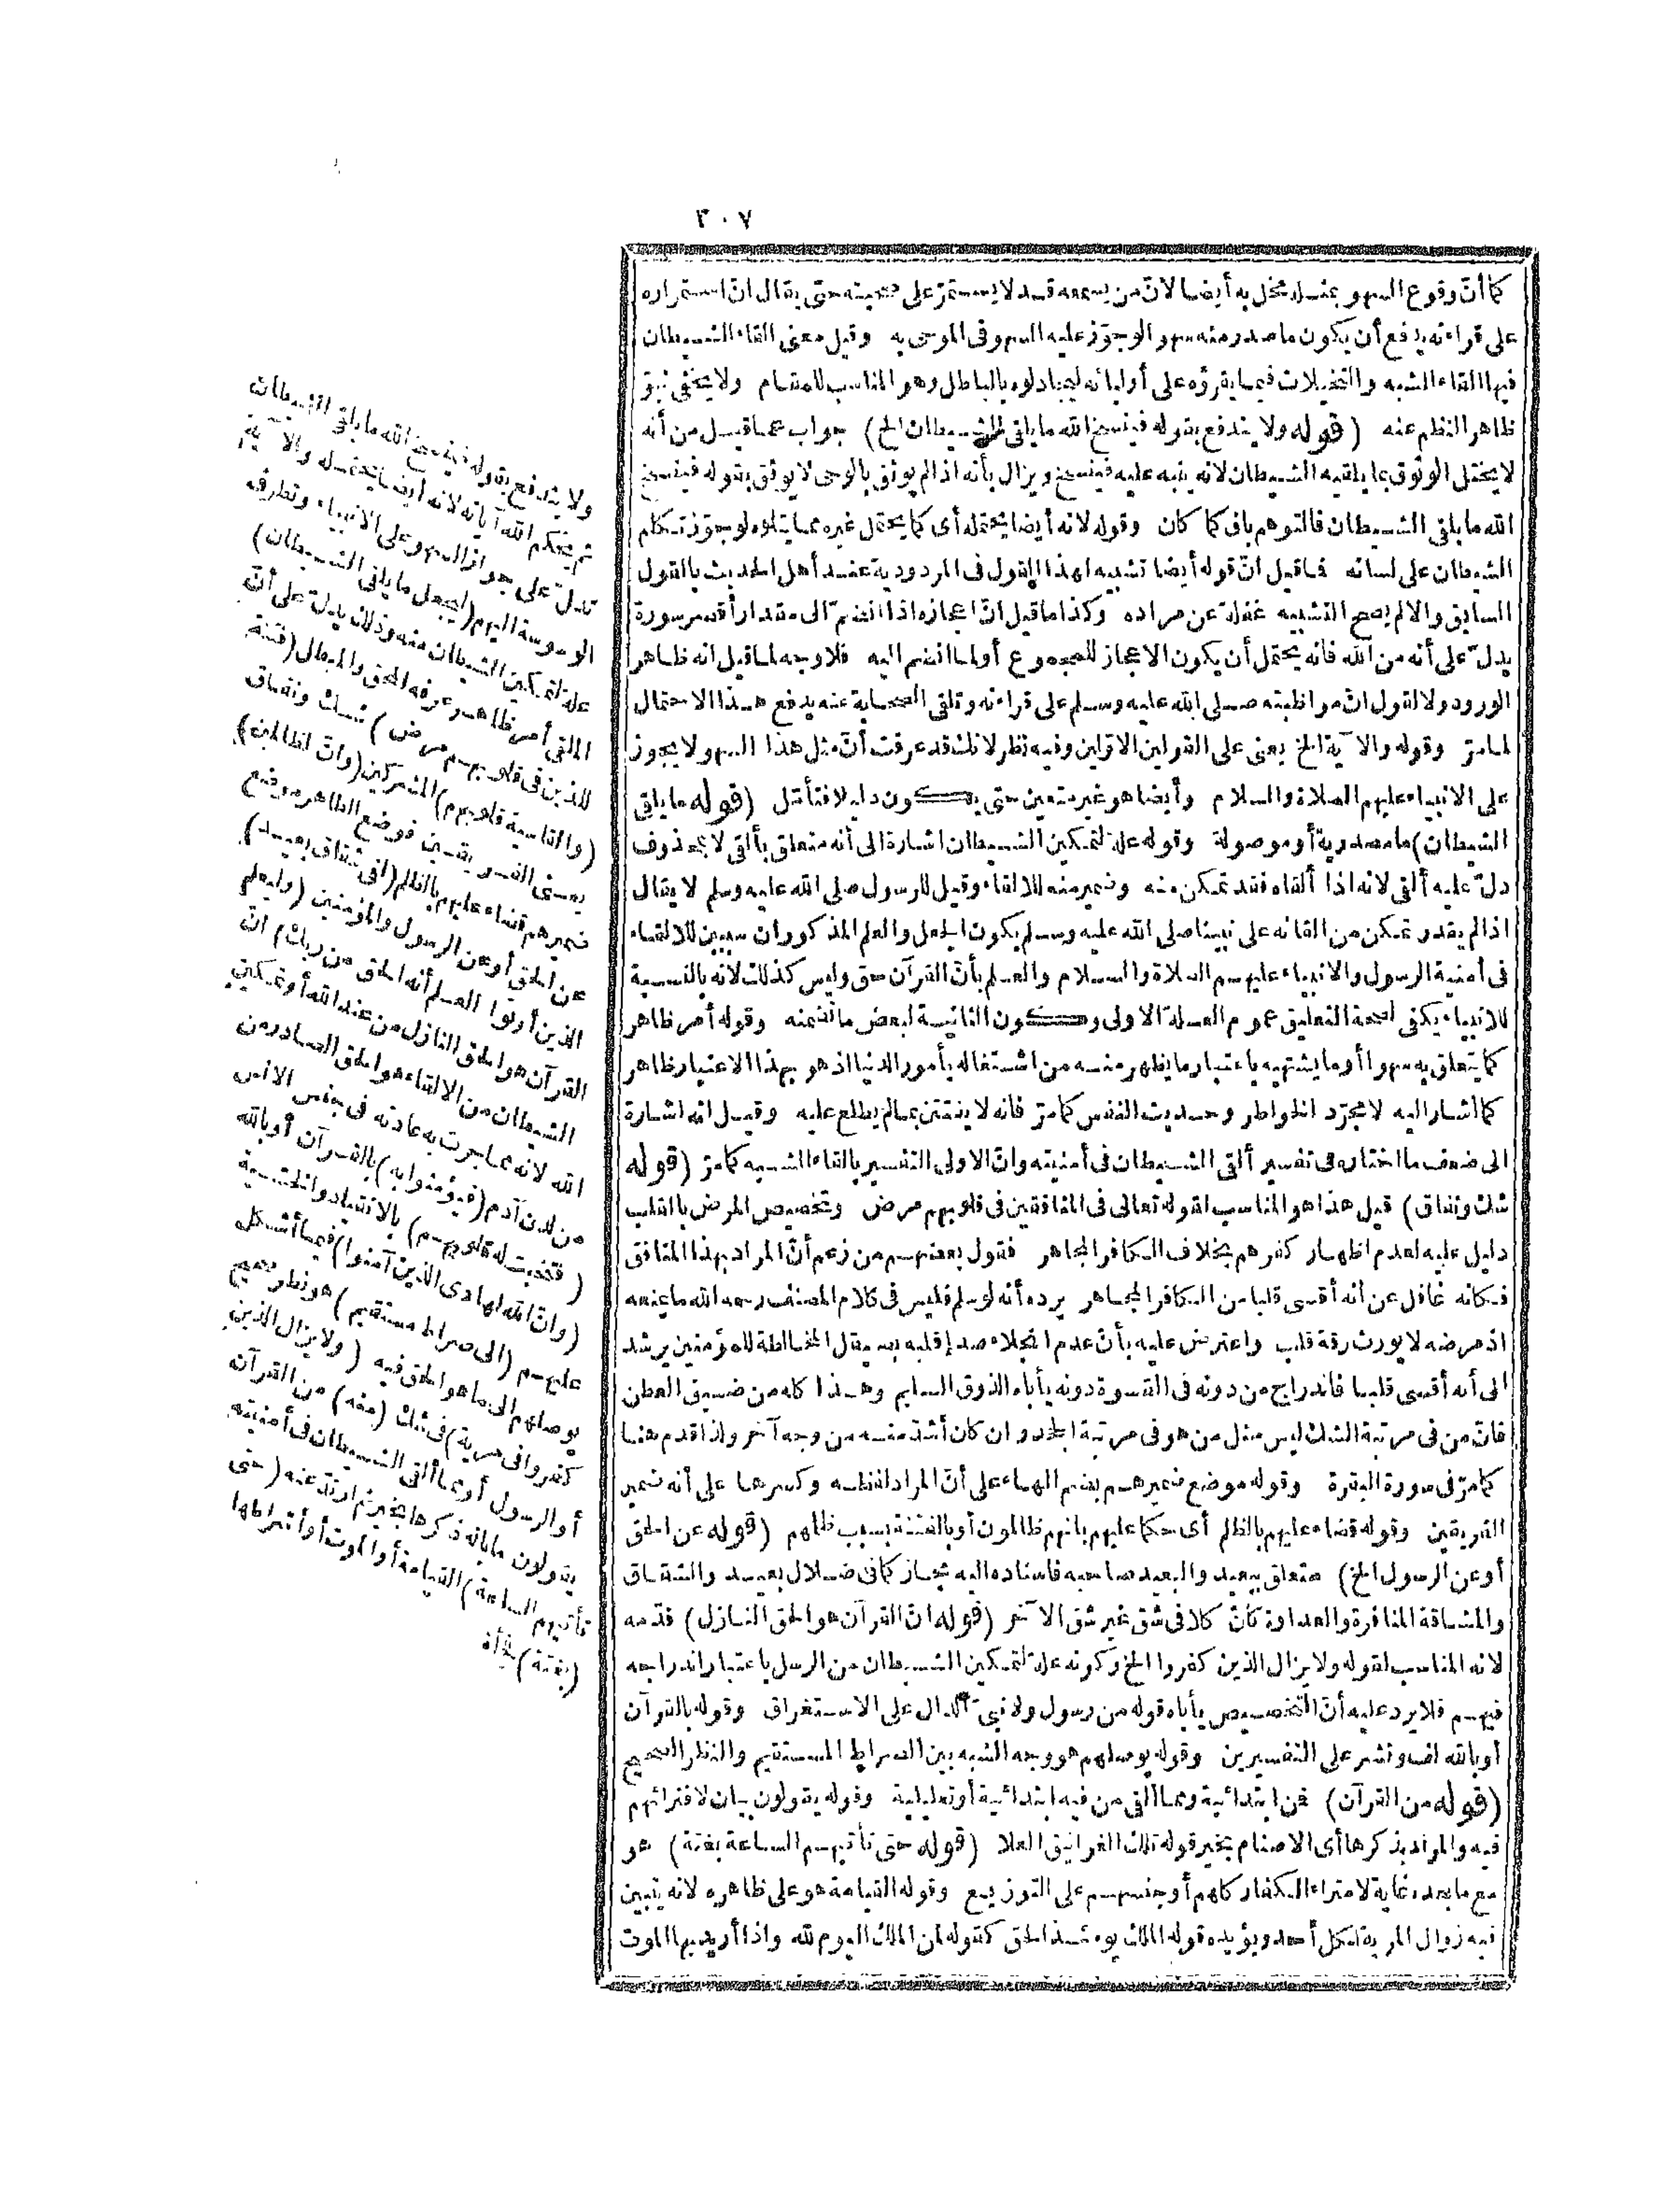 ٣٠٧
كما أنّ وقوع السهو بمثله مخل به أيضا لانّ من يسمعه قد لا يستمرّ على صحبته حتى يقال ان استمراره
على قراءته يدفع أن يكون ما صدر منه سهوا لو جوّز عليه السهو فى الموحى به وقيل معنى القاء الشيطان
فيها القاء الشبه والتخيلات فيما يقرؤه على أوليائه ليجادلوه بالباطل وهو المناسب للمقام ولا يخفى نبوّ
ظاهر النظم عنه (قوله ولا يندفع بقوله فينسخ الله ما يلقى الشيطان الخ) جواب عما قيل من أنه
لا يختل الوثوق بما يلقيه الشيطان لانه ينبه عليه فينسخ ويزال بأنه اذا لم يوثق بالوحى لا يوثق بقوله فينسخ
الله ما يلقى الشيطان فالتوهم باق كما كان وقوله لانه أيضا يحتمله أى كما يحتمل غيره مما يتلوه لو جوّز تكلم
الشيطان على لسانه فما قيل انّ قوله أيضا تشبيه لهذا القول فى المردودية عند أهل الحديث بالقول
السابق والا لم يصح التشبيه غفلة عن مراده وكذا ما قيل انّ اعجازه اذا انضمّ الى مقدار أقصر سورة
يدلّ على أنه من الله فانه يحتمل أن يكون الاعجاز للمجموع أو لما انضم اليه فلا وجه لما قيل انه ظاهر
الورود ولا للقول انّ مواظبته صلى الله عليه وسلم على قراءته وتلقى الصحابة عنه يدفع هذا الاحتمال
لما مرّ وقوله والآية الخ يعنى على القولين الاوّلين وفيه نظر لانك قد عرفت أنّ مثل هذا السهو لا يجوز
على الانبياء عليهم الصلاة والسلام وأيضا هو غير متعين حتى يكون دليلا فتأمّل (قوله ما يلقى
الشيطان) ما مصدرية أو موصولة وقوله علة لتمكين الشيطان اشارة الى أنه متعلق بألقى لا بمحذوف
دلّ عليه ألقى لانه اذا ألقاه فقد تمكن منه وضمير منه للالقاء وقيل للرسول صلى الله عليه وسلم لا يقال
اذا لم يقدر تمكن من القائه على نبينا صلى الله عليه وسلم يكون الجعل والعلم المذكوران سببين للالقاء
فى أمنية الرسول والانبياء عليهم الصلاة والسلام والعلم بأنّ القرآن حق وليس كذلك لانه بالنسبة
للانبياء يكفى لصحة التعليق عموم العلة الاولى وكون الثانية لبعض ما تضمنه وقوله أمر ظاهر
كما يتعلق به سهوا أو ما يشتهيه باعتبار ما يظهر منه من اشتغاله بأمور الدنيا اذ هو بهذا الاعتبار ظاهر
كما أشار اليه لا مجرّد الخواطر وحديث النفس كما مرّ فانه لا يفتتن بما لم يطلع عليه وقيل انه اشارة
الى ضعف ما اختاره فى تفسير ألقى الشيطان فى أمنيته وانّ الاولى التفسير بالقاء الشبه كما مرّ (قوله
شك ونفاق) قيل هذا هو المناسب لقوله تعالى فى المنافقين فى قلوبهم مرض وتخصيص المرض بالقلب
دليل عليه لعدم اظهار كفرهم بخلاف الكافر المجاهر فقول بعضهم من زعم أنّ المراد بهذا المنافق
فكانه غافل عن أنه أقسى قلبا من الكافر المجاهر يرده أنه لو سلم فليس فى كلام المصنف رحمه الله ما يمنعه
اذ مرضه لا يورث رقة قلب واعترض عليه بأنّ عدم انجلاء صدإ قلبه بصيقل المخالطة للمؤمنين يرشد
الى أنه أقسى قلبا فاندراج من دونه فى القسوة دونه يأباه الذوق السليم وهذا كله من ضيق العطن
فانّ من فى مرتبة الشك ليس مثل من هو فى مرتبة الجحد وان كان أشدّ منه من وجه آخر ولذا قدم هنا
كما مرّ فى سورة البقرة وقوله موضع ضميرهم بضم الهاء على أنّ المراد لفظه وكسرها على أنه ضمير
الفريقين وقوله قضاء عليهم بالظلم أى حكما عليهم بانهم ظالمون أو بالفتنة بسبب ظلمهم (قوله عن الحق
أو عن الرسول الخ) متعلق ببعيد والبعيد صاحبه فاسناده اليه مجاز كما فى ضلال بعيد والشقاق
والمشاقة المنافرة والعداوة كأنّ كلا فى شق غير شق الآخر (قوله انّ القرآن هو الحق النازل) قدّمه
لانه المناسب لقوله ولا يزال الذين كفروا الخ وكونه علة لتمكين الشيطان من الرسل باعتبار اندراجه
فيهم فلا يرد عليه أنّ التخصيص يأباه قوله من رسول ولا نبىّ الدال على الاستغراق وقوله بالقرآن
أو بالله لف ونشر على التفسيرين وقوله يوصلهم هو وجه الشبه بين الصراط المستقيم والنظر الصحيح
(قوله من القرآن) فمن ابتدائية ومما ألقى من فيه ابتدائية أو تعليلية وقوله يقولون بيان لافترائهم
فيه والمراد بذكرها أى الاصنام بخير قوله تلك الغرانيق العلا (قوله حتى تأتيهم الساعة بغتة) هو
مع ما بعده غاية لامتراء الكفار كلهم أو جنسهم على التوزيع وقوله القيامة هو على ظاهره لانه يتبين
فيه زوال المرية لكل أحد ويؤيده قوله الملك يومئذ الحق كقوله لمن الملك اليوم لله واذا أريد بها الموت
ولا يندفع بقوله فينسخ الله ما يلقى الشيطان
ثم يحكم الله آياته لانه أيضا يحتمله والآية
تدلّ على جواز السهو على الانبياء وتطرق
الوسوسة اليهم (ليجعل ما يلقى الشيطان)
علة لتمكين الشيطان منه وذلك يدلّ على أنّ
الملقى أمر ظاهر عرفه المحق والمبطل (فتنة
للذين فى قلوبهم مرض) شك ونفاق
(والقاسية قلوبهم) المشركين (وانّ الظالمين)
يعنى الفريقين فوضع الظاهر موضع
ضميرهم قضاء عليهم بالظلم (لفى شقاق بعيد)
عن الحق أو عن الرسول والمؤمنين (وليعلم
الذين أوتوا العلم أنه الحق من ربك) انّ
القرآن هو الحق النازل من عند الله أو تمكين
الشيطان من الالقاء هو الحق الصادر من
الله لانه مما جرت به عادته فى جنس الانس
من لدن آدم (فيؤمنوا به) بالقرآن أو بالله
(فتخبت له قلوبهم) بالانقياد والخشية
(وان الله لهادى الذين آمنوا) فيما أشكل
عليهم (الى صراط مستقيم) هو نظر صحيح
يوصلهم الى ما هو الحق فيه (ولا يزال الذين
كفروا فى مرية) فى شك (منه) من القرآن
أو الرسول أو مما ألقى الشيطان فى أمنيته
يقولون ما باله ذكرها بخير ثم ارتدّ عنه (حتى
تأتيهم الساعة) القيامة أو الموت أو أشراطها
(بغتة) فجأة